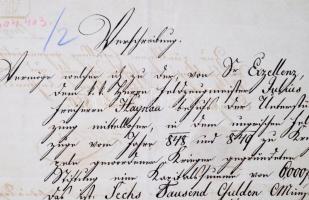 1/2
Verschreibung.
Vermöge welcher ich zu der, von Sr Exzellenz,
dem k.k. Herrn Feldzeugmeister Julius
Freiherrn Haynau behufs der Unterstü-
zung mittelloser, in dem ungrischen Feld-
zuge vom Jahre 1848 und 1849 zu Krü-
peln gewordener Krieger gegründeten
Stiftung eine Kapitalssumme von 6000 f
Das ist: Sechs Tausend Gulden